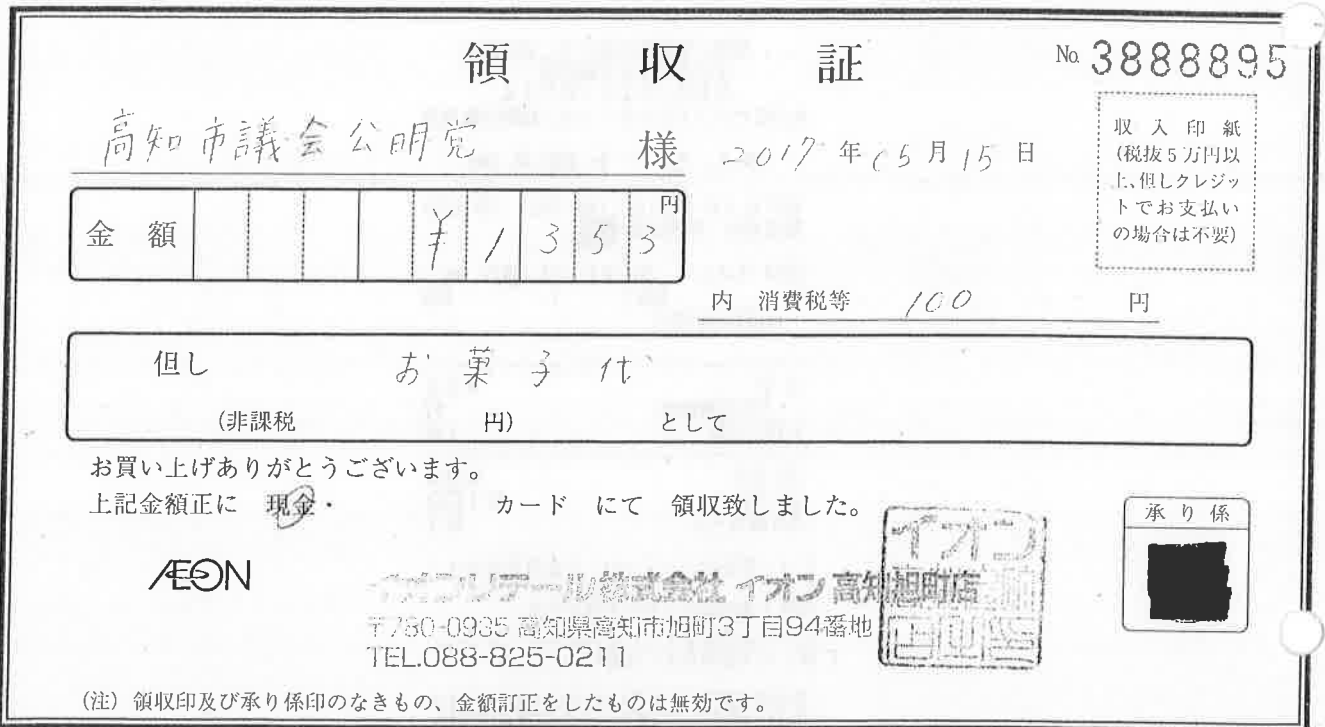 領収証
No. 3888895
高知市議会公明党 様 2017年05月15日
収入印紙
(税抜5万円以
上、但しクレジッ
トでお支払い
の場合は不要)
金額 ¥1353円
内 消費税等 100 円
但し お菓子代
(非課税 円) として
お買い上げありがとうございます。
上記金額正に 現金・ カード にて 領収致しました。
承り係
AEON
イオンリテール株式会社 イオン高知旭町店
〒780-0935 高知県高知市旭町3丁目94番地
TEL.088-825-0211
イオン
(注) 領収印及び承り係印のなきもの、金額訂正をしたものは無効です。